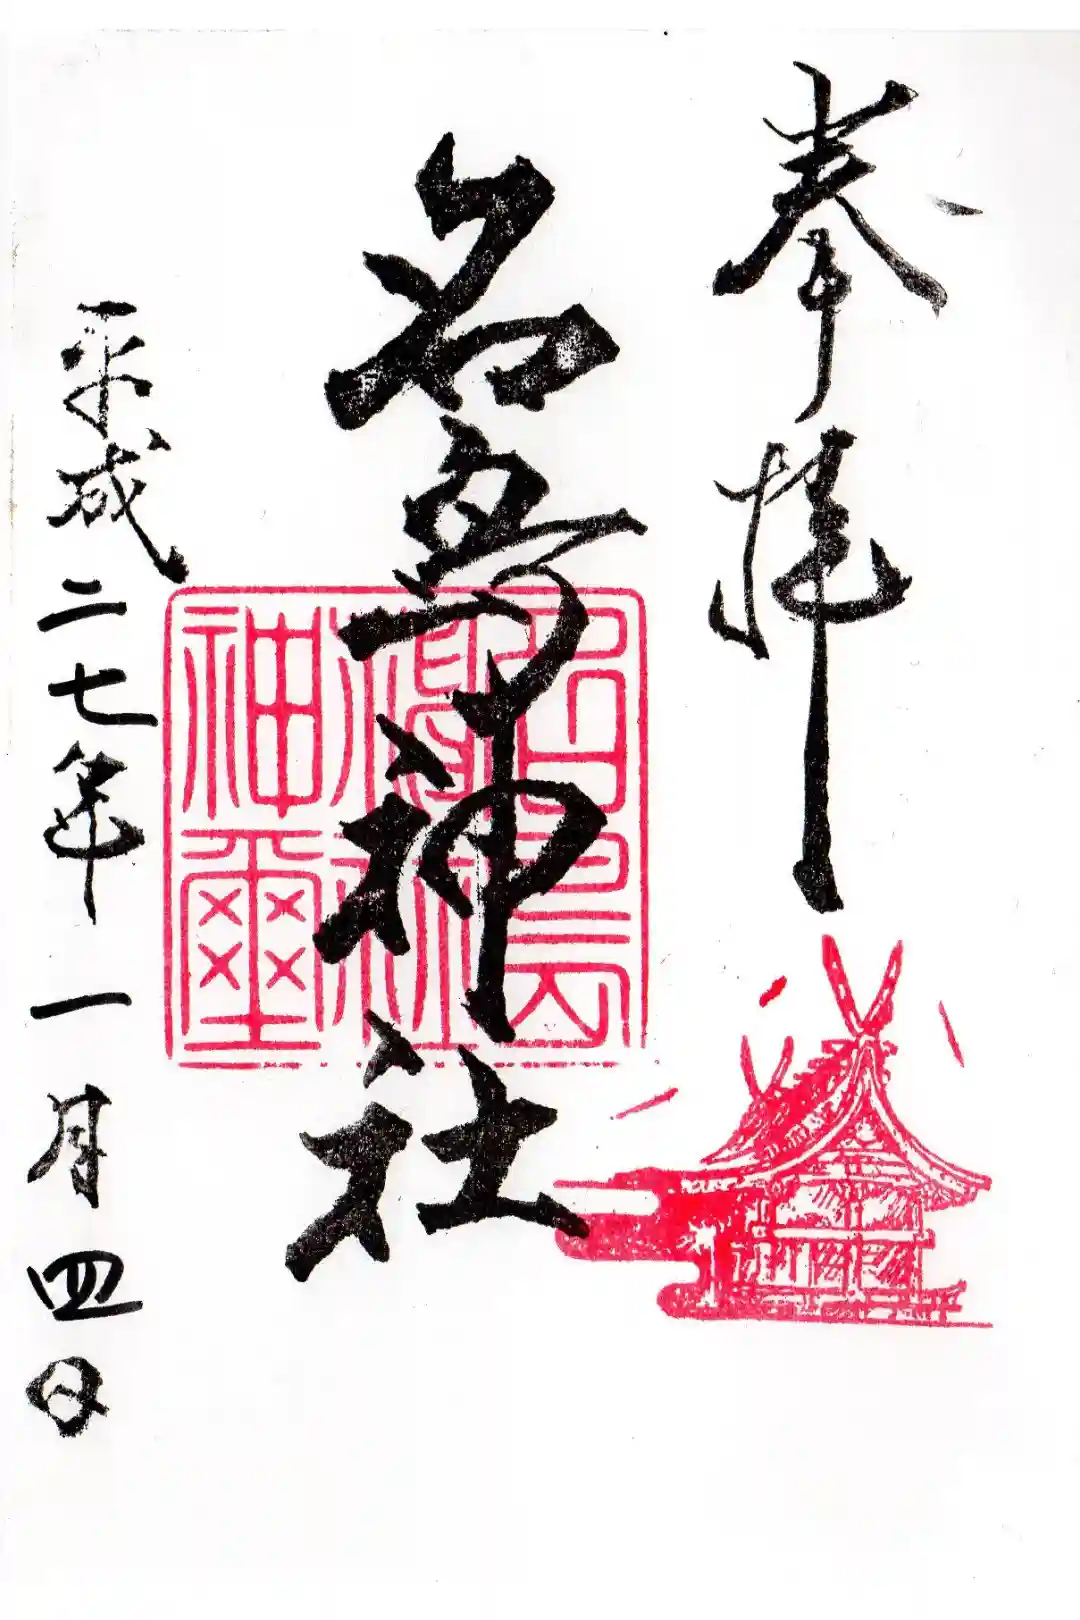 奉拝
名島神社
平成二七年一月四日
名島
神璽